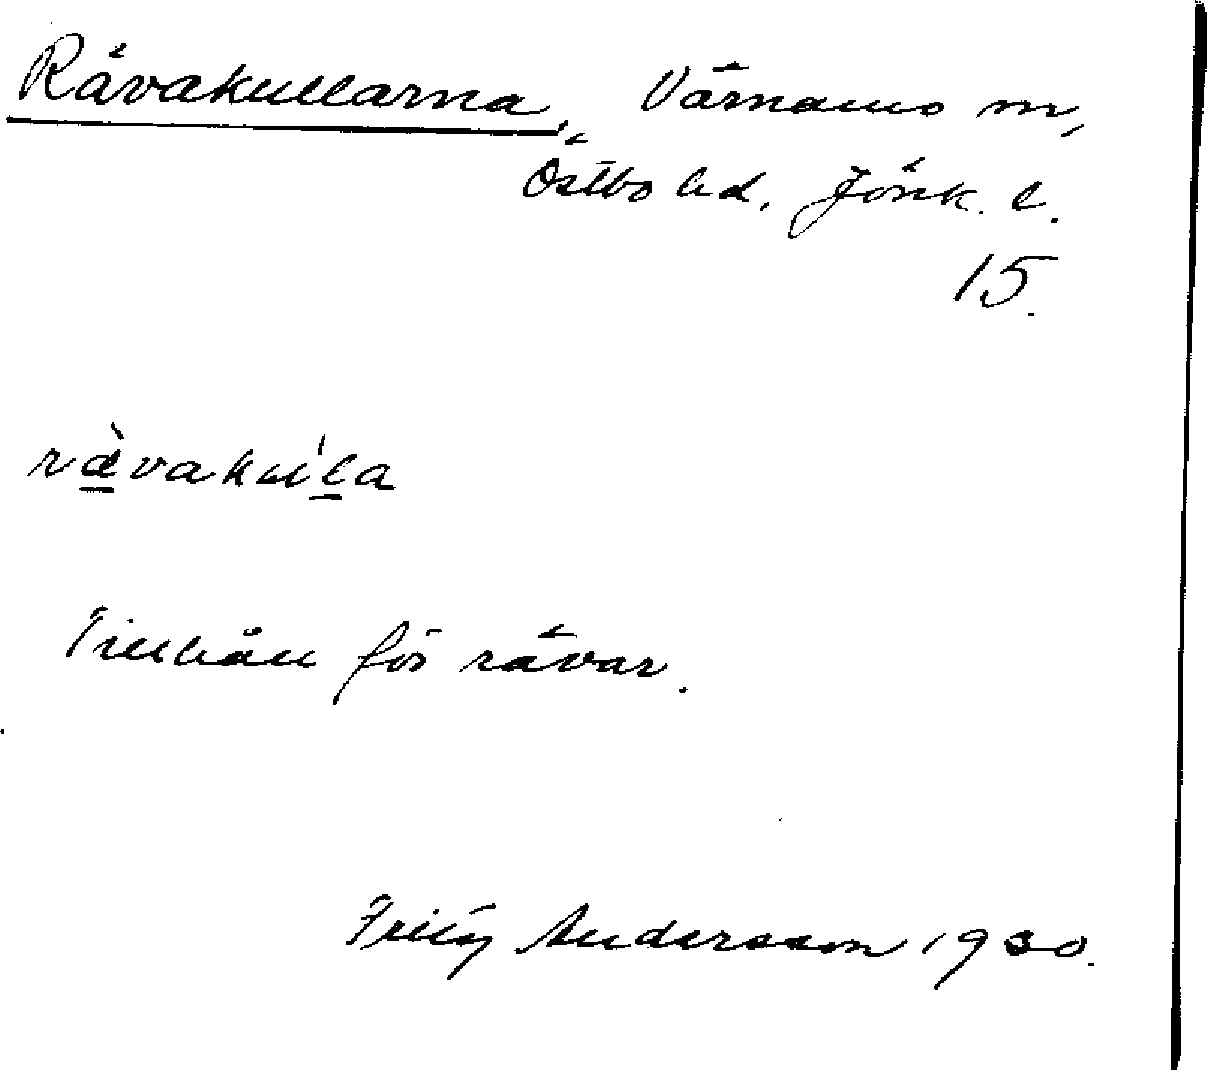 Rävakullarna, Värnamo sn,
Östbo hd, Jönk. l.
15.
rä̀vaku'la
Tillhåll för rävar.
Fritz Andersson 1930.